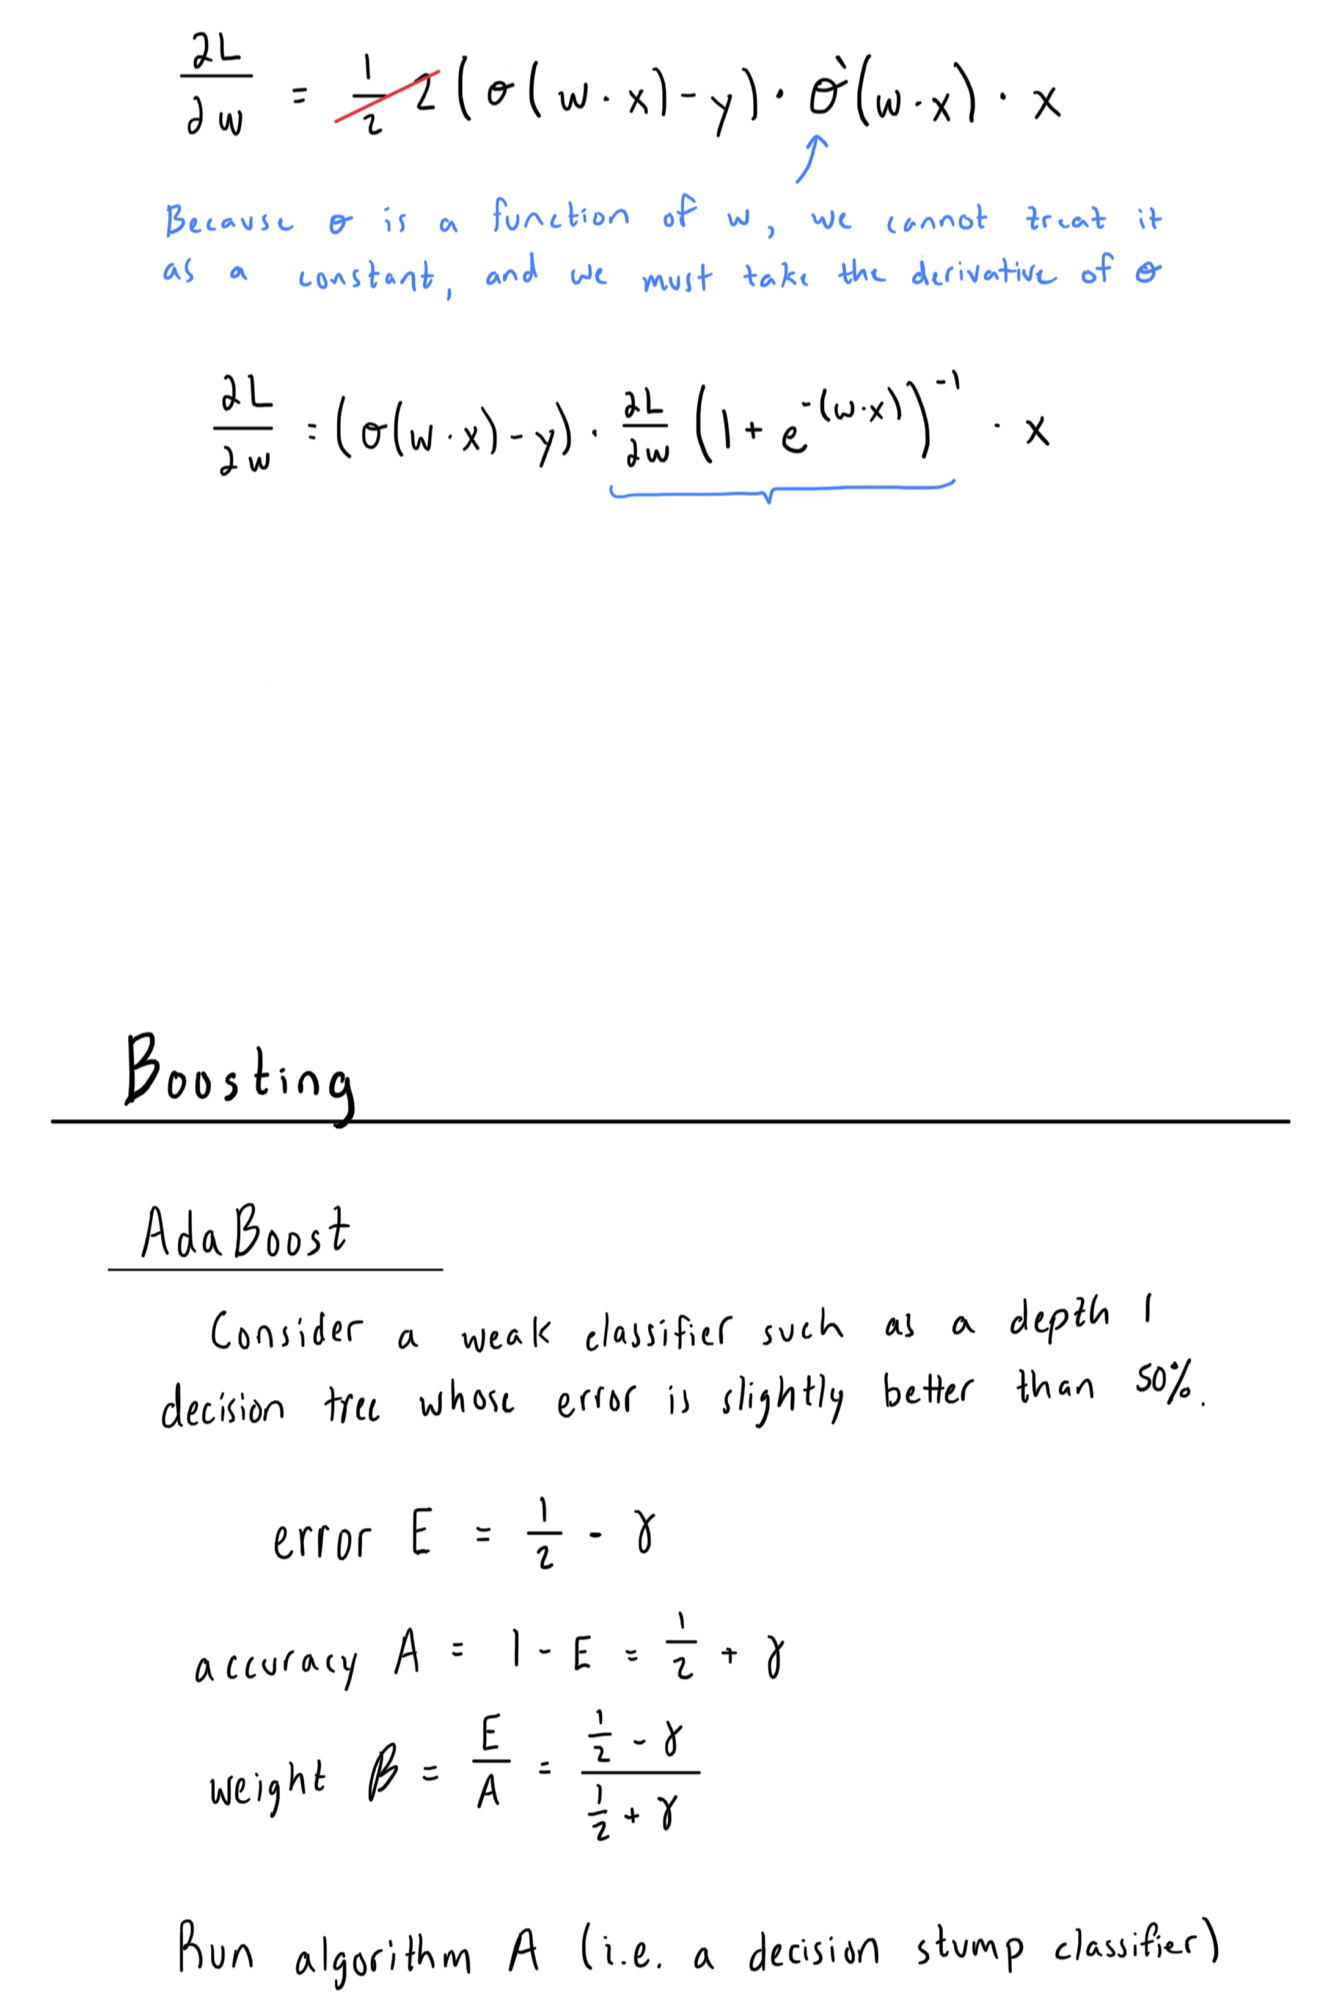 ∂L/∂w = 1/2 2(σ(w·x)-y)·σ'(w·x)·x
Because σ is a function of w, we cannot treat it
as a constant, and we must take the derivative of σ
∂L/∂w = (σ(w·x)-y)·∂L/∂w (1+e^-(w·x))^-1 · x
Boosting
AdaBoost
Consider a weak classifier such as a depth 1
decision tree whose error is slightly better than 50%.
error E = 1/2 - γ
accuracy A = 1 - E = 1/2 + γ
weight β = E/A = (1/2 - γ)/(1/2 + γ)
Run algorithm A (i.e. a decision stump classifier)